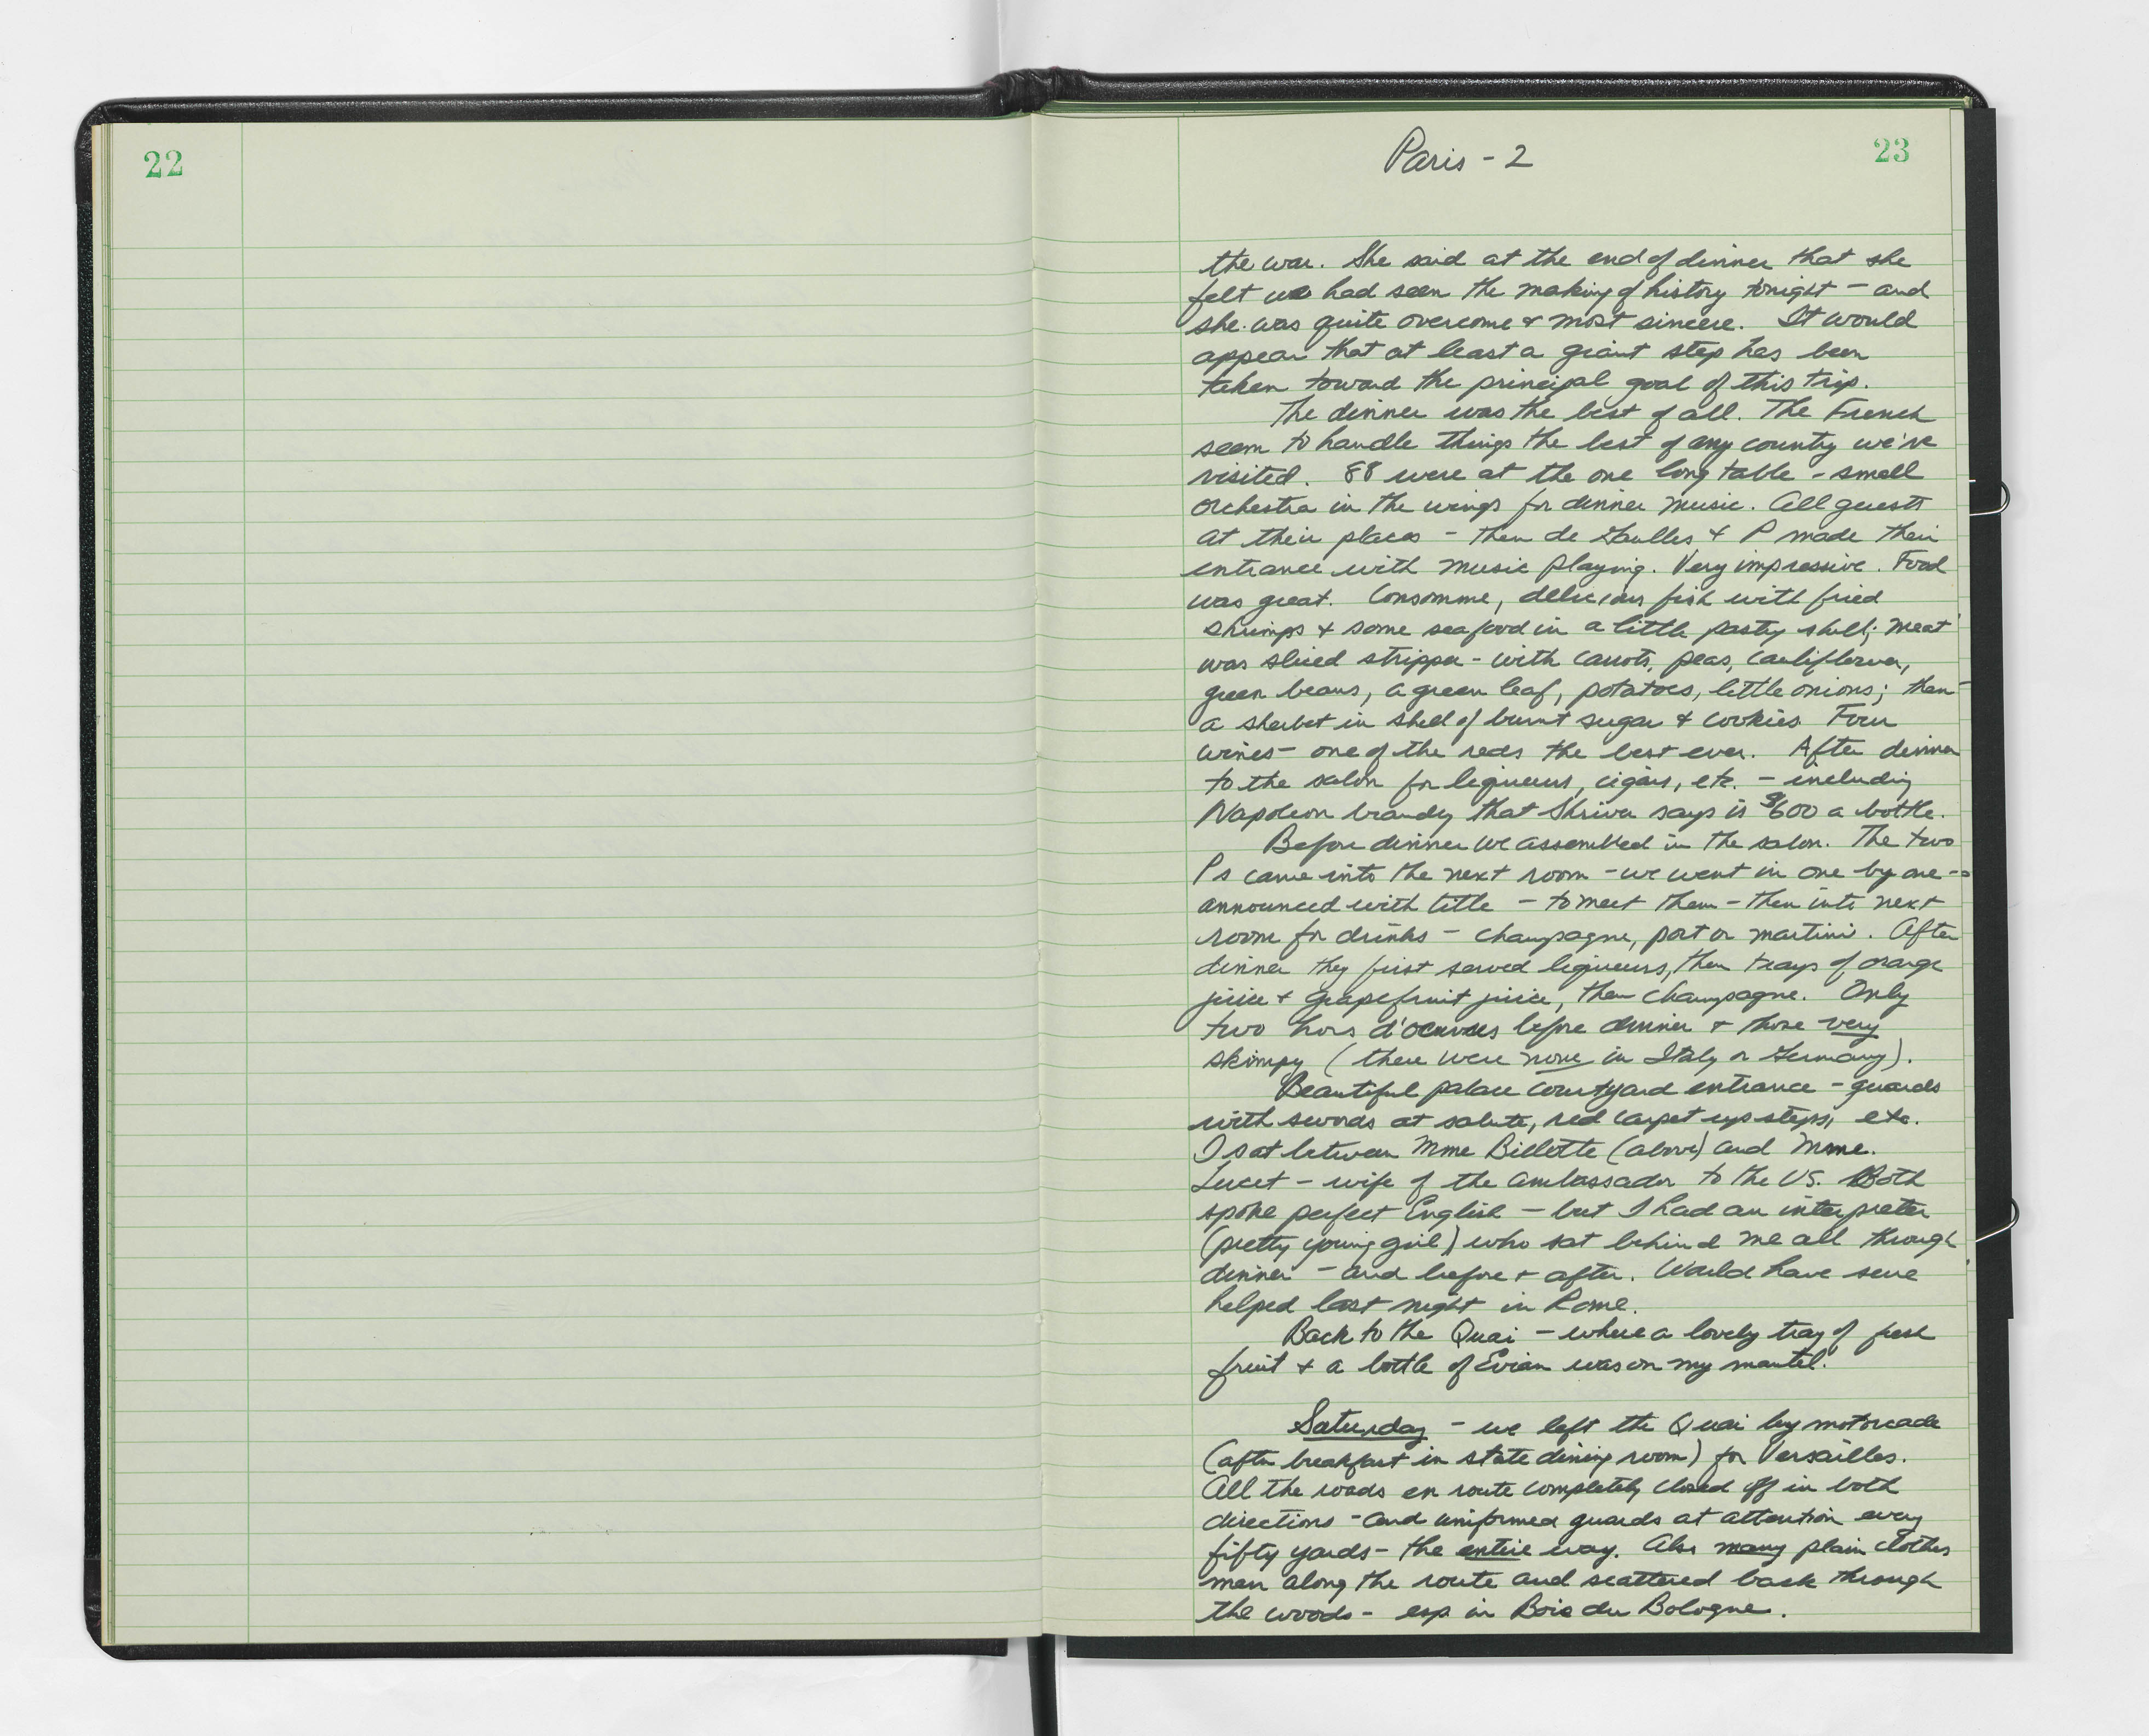 22
Paris - 2
23
the war. She said at the end of dinner that she
felt we had seen the making of history tonight - and
she was quite overcome & most sincere. It would
appear that at least a giant step has been
taken toward the principal goal of this trip.
The dinner was the best of all. The French
seem to handle things the best of any country we've
visited. 88 were at the one long table - small
orchestra in the wings for dinner music. All guests
at their places - then de Gaulles & P made their
entrance with music playing. Very impressive. Food
was great. Consomme, delicious fish with fried
shrimps & some seafood in a little pastry shell; meat
was sliced strippe - with carrots, peas, cauliflower,
green beans, a green leaf, potatoes, little onions; then
a sherbet in shell of burnt sugar & cookies. Four
wines - one of the reds the best ever. After dinner
to the salon for liqueurs, cigars, etc. - including
Napoleon brandy that Shriver says is $600 a bottle.
Before dinner we assembled in the salon. The two
Ps came into the next room - we went in one by one -
announced with title - to meet them - then into next
room for drinks - champagne, port or martini. After
dinner they first served liqueurs, then trays of orange
juice & grapefruit juice, then champagne. Only
two hors d'oeuvres before dinner & those very
skimpy (there were none in Italy or Germany).
Beautiful palace courtyard entrance - guards
with swords at salute, red carpet up steps, etc.
I sat between Mme Billotte (above) and Mme.
Lucet - wife of the ambassador to the US. Both
spoke perfect English - but I had an interpreter
(pretty young girl) who sat behind me all through
dinner - and before & after. Would have sure
helped last night in Rome.
Back to the Quai - where a lovely tray of fresh
fruit & a bottle of Evian was on my mantel.
Saturday - we left the Quai by motorcade
(after breakfast in state dining room) for Versailles.
All the roads en route completely closed off in both
directions - and uniformed guards at attention every
fifty yards - the entire way. Also many plain clothes
men along the route and scattered back through
the woods - esp in Bois du Bologne.